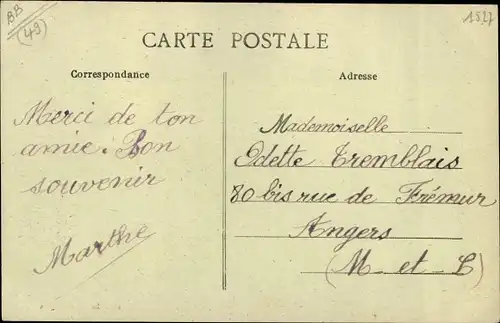 BB
(49)
1527
CARTE POSTALE
Correspondance
Adresse
Merci de ton
amie. Bon
souvenir
Marthe
Mademoiselle
Odette Tremblais
80 bis rue de Frémur
Angers
(M - et - L)